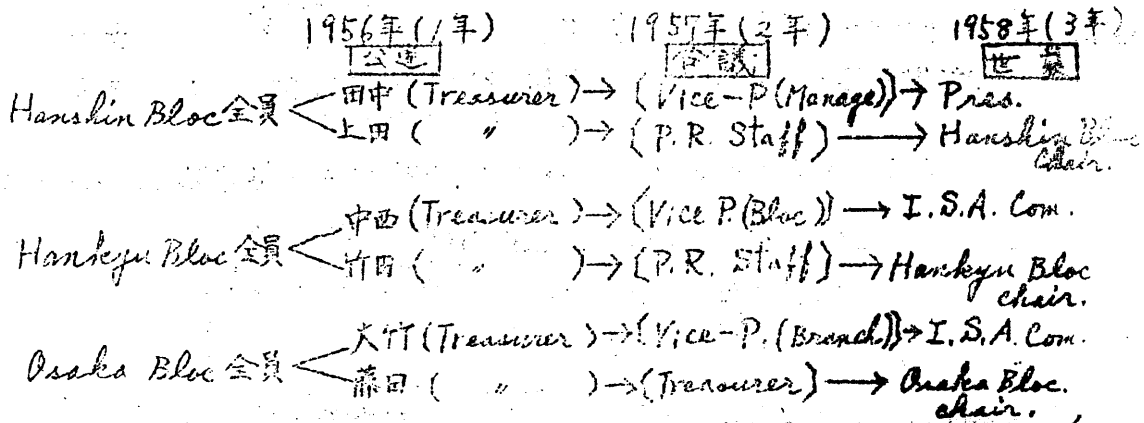 1956年(1年) 1957年(2年) 1958年(3年)
公運 合議 世
Hanshin Bloc 全員 田中 (Treasurer) → (Vice-P (Manage)) → Pres.
上田 ( 〃 ) → (P.R. Staff) → Hanshin Bloc
chair.
Hankyu Bloc 全員 中西 (Treasurer) → (Vice P. (Bloc)) → I.S.A. Com.
竹田 ( 〃 ) → (P.R. Staff) → Hankyu Bloc
chair.
Osaka Bloc 全員 大竹 (Treasurer) → (Vice-P. (Branch)) → I.S.A. Com.
藤田 ( 〃 ) → (Treasurer) → Osaka Bloc.
chair.